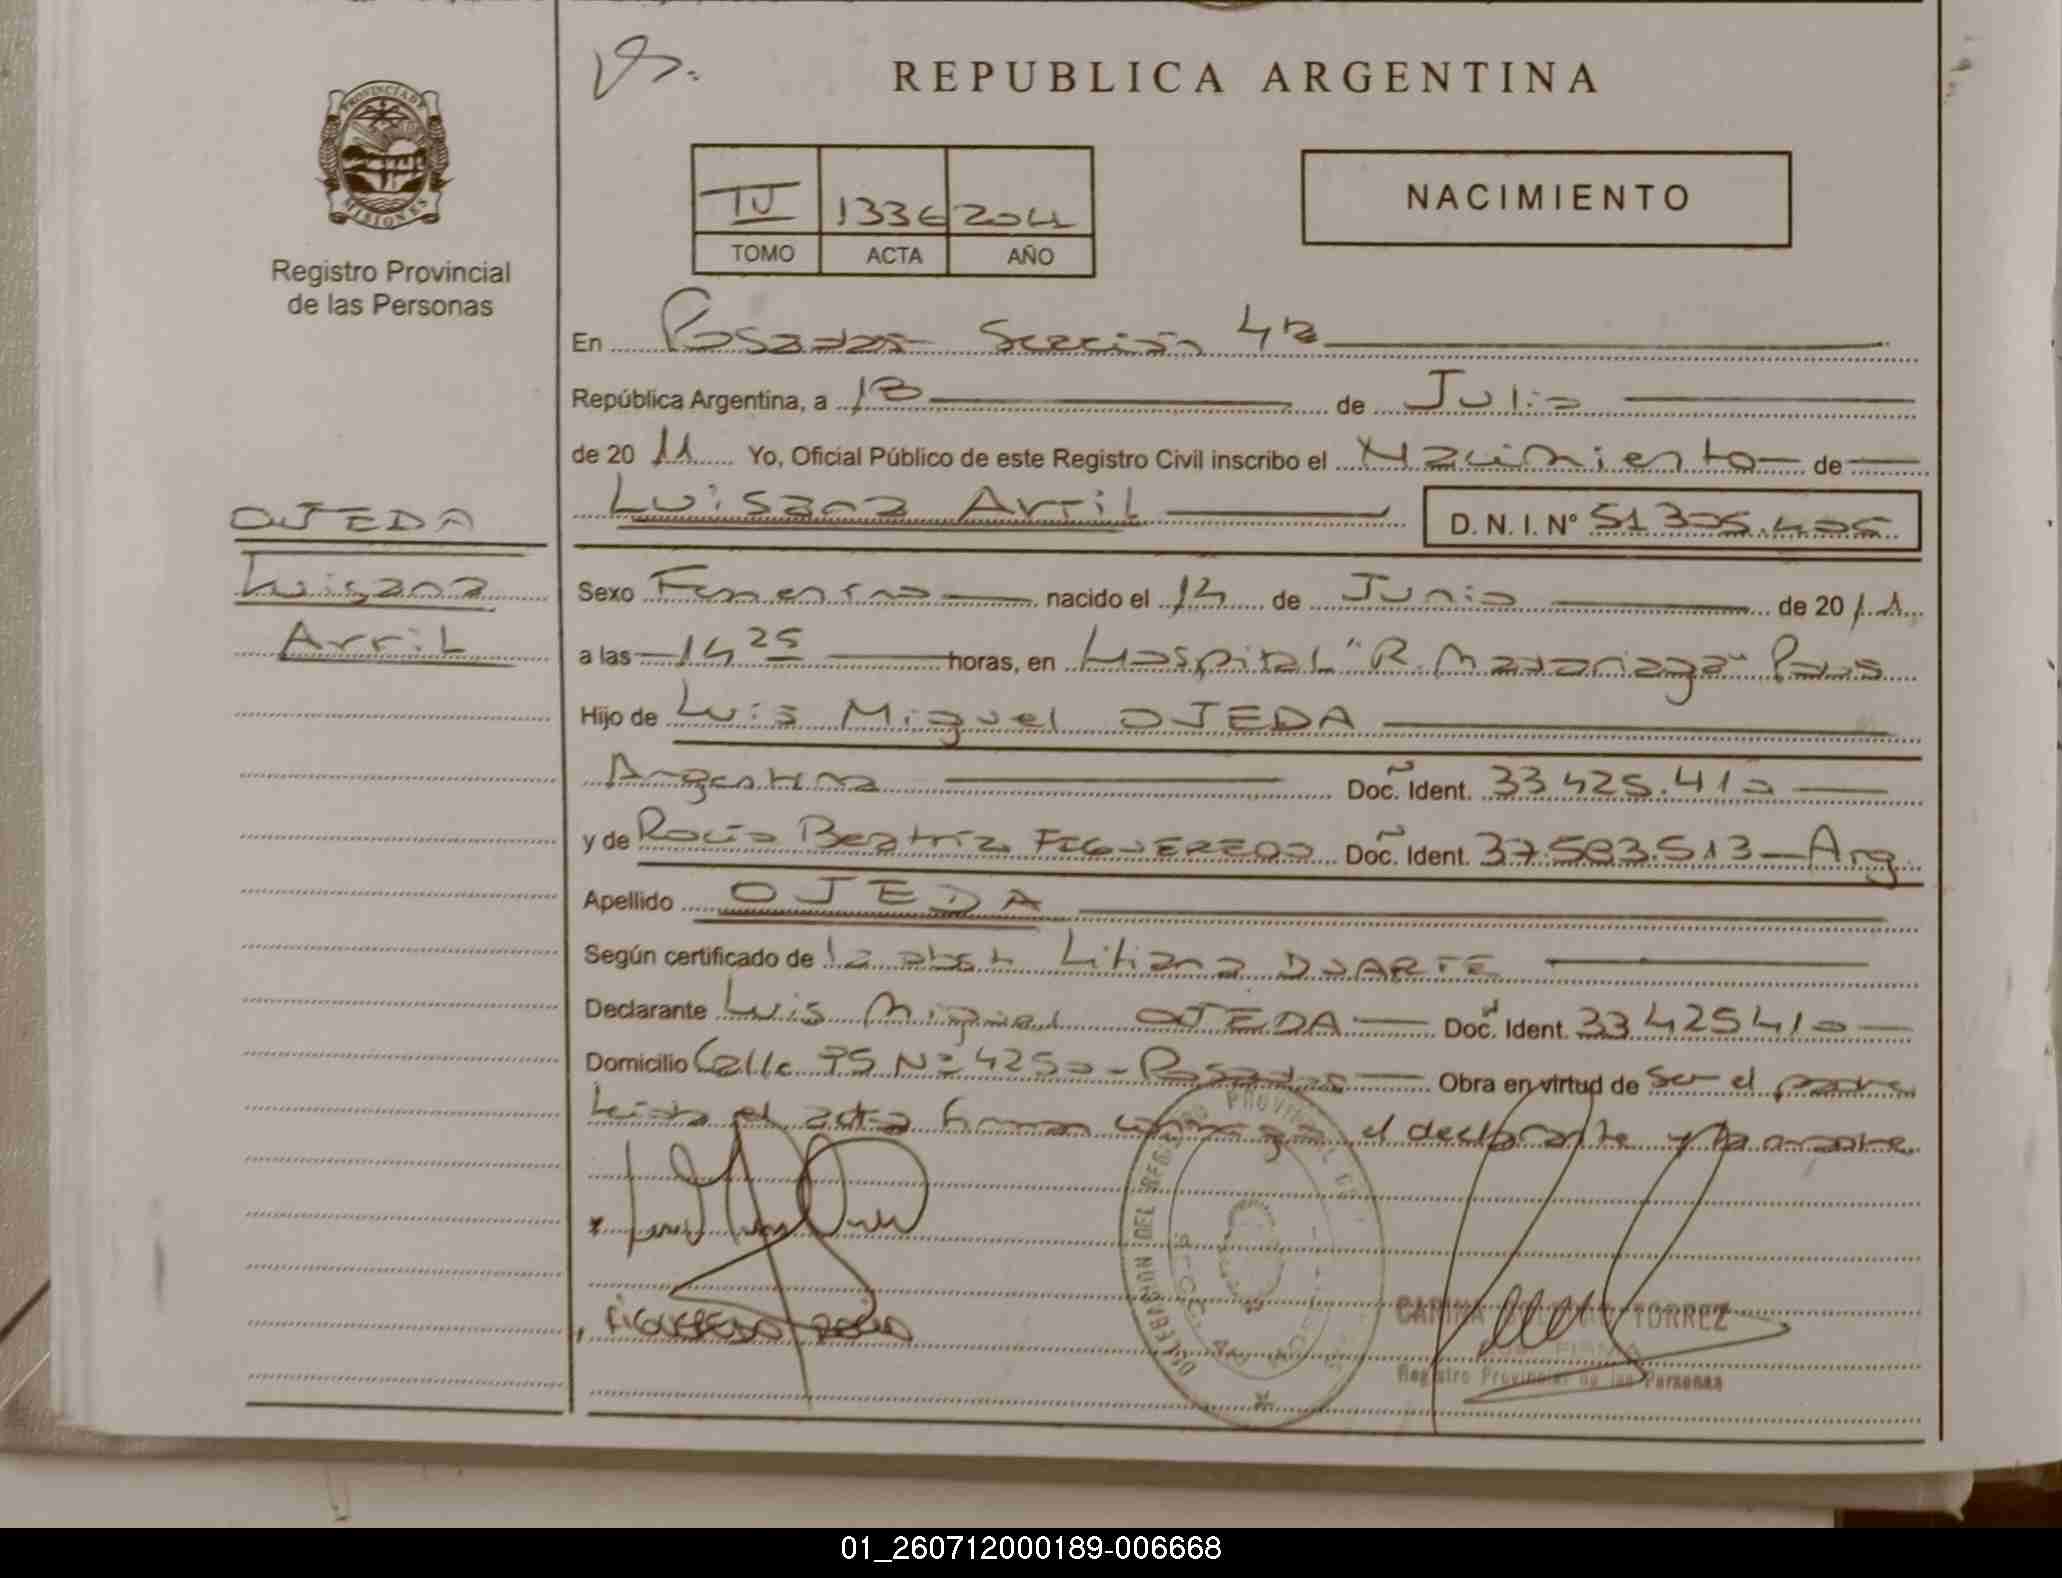 REPUBLICA ARGENTINA
PROVINCIA DE
MISIONES
Registro Provincial
de las Personas
1336
TOMO ACTA AÑO
NACIMIENTO
En Posadas Sección 4ta
República Argentina, a 13 de Julio
de 2011 Yo, Oficial Público de este Registro Civil inscribo el Nacimiento de
Luisana Arril D. N. I. N° 51 305.405
OJEDA
Luisana
Arril
Sexo Femenino nacido el 14 de Junio de 2011
a las 14 25 horas, en Hospital "R. Madariaga" Pdas
Hijo de Luis Miguel OJEDA
Argentina Doc. Ident. 33 425.410
y de Rocío Beatriz FIGUEREDO Doc. Ident. 37.583.513 Arg
Apellido OJEDA
Según certificado de la obst Liliana DUARTE
Declarante Luis Miguel OJEDA Doc. Ident. 33 425410
Domicilio Calle 75 Nº 4250 - Posadas Obra en virtud de ser el padre
Leida el acta firman conmigo el declarante y la madre
FIGUEREDO ROCIO
DELEGACION DEL REGISTRO PROVINCIAL DE
CARINA TORREZ
FIRMA
Registro Provincial de las Personas
01_260712000189-006668